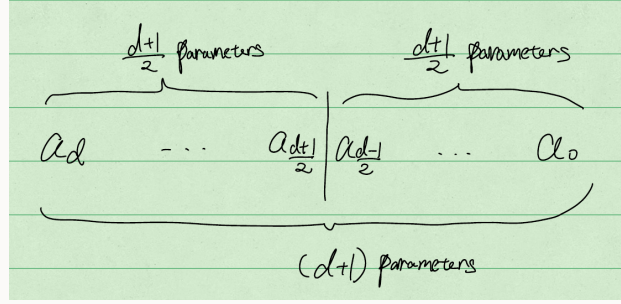 d+1/2 parameters d+1/2 parameters
a_d - ... a_{d+1/2} | a_{d-1/2} ... a_0
(d+1) parameters